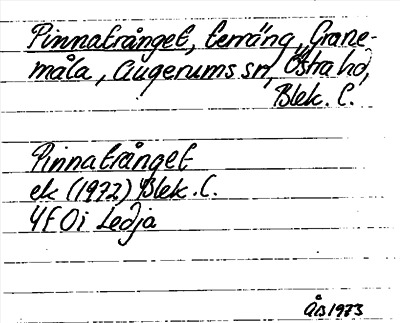 Pinnatrånget, terräng, Grane-
måla, Augerums sn, Östra hd,
Blek. l.
Pinnatrånget
ek (1972) Blek. l.
4F0i Ledja
ÅB 1973